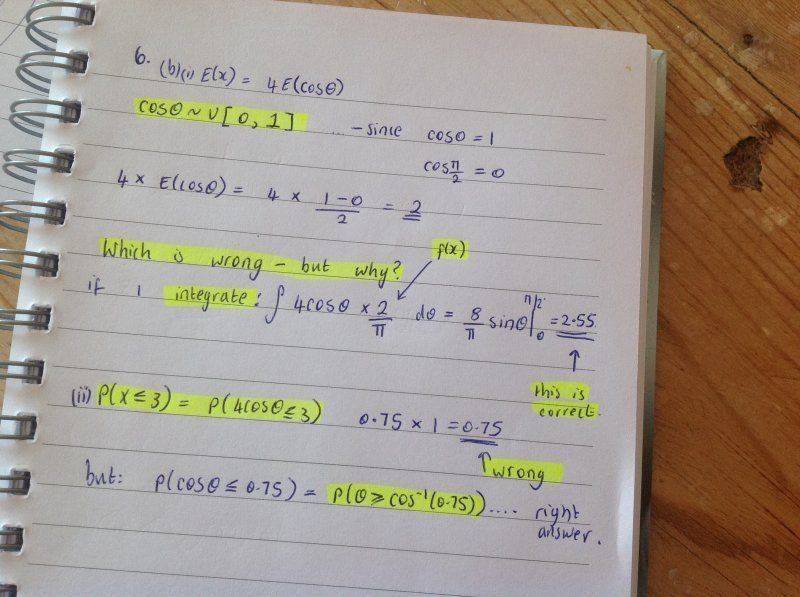 6. (b)(i) E(x) = 4E(cosθ)
cosθ ~ U[0, 1] ... - since cosθ = 1
cos π/2 = 0
4 × E(cosθ) = 4 × (1-0)/2 = 2
Which is wrong - but why? f(x)
if I integrate: ∫ 4cosθ × 2/π dθ = 8/π sinθ |₀^π/2 = 2.55
↑
this is
correct.
(ii) P(X ≤ 3) = P(4cosθ ≤ 3) 0.75 × 1 = 0.75
↑ wrong
but: P(cosθ ≤ 0.75) = P(θ ≥ cos⁻¹(0.75)) .... right
answer.